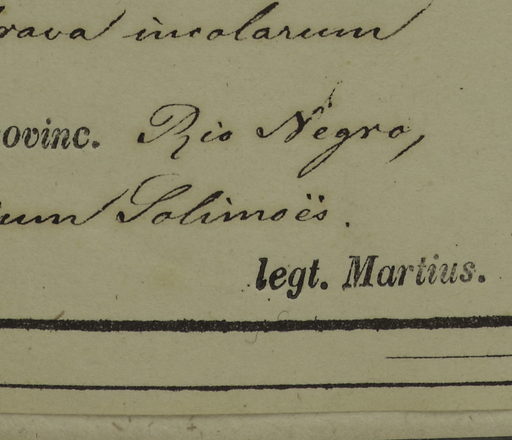 incolarum
ovinc. Rio Negro,
um Solimoës.
legt. Martius.